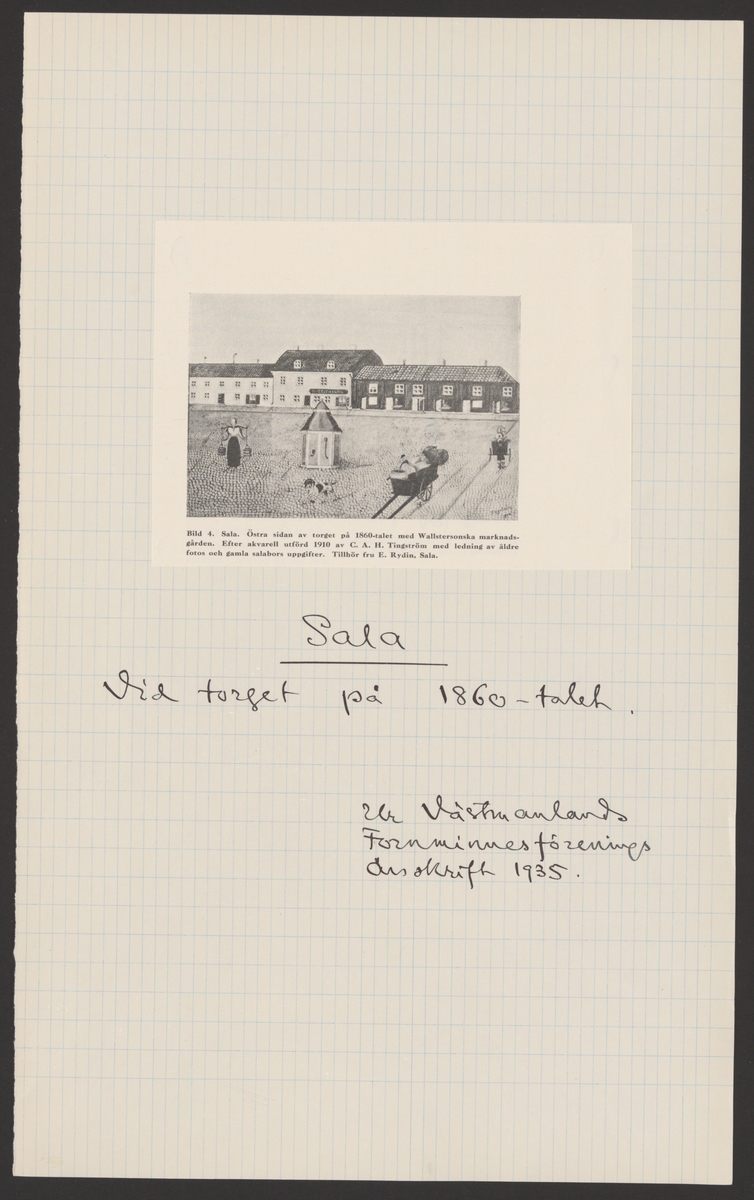 Bild 4. Sala. Östra sidan av torget på 1860-talet med Wallstersonska marknads-
gården. Efter akvarell utförd 1910 av C. A. H. Tingström med ledning av äldre
fotos och gamla salabors uppgifter. Tillhör fru E. Rydin, Sala.
Sala
Vid torget på 1860-talet.
Ur Västmanlands
Fornminnesförenings
Årsskrift 1935.